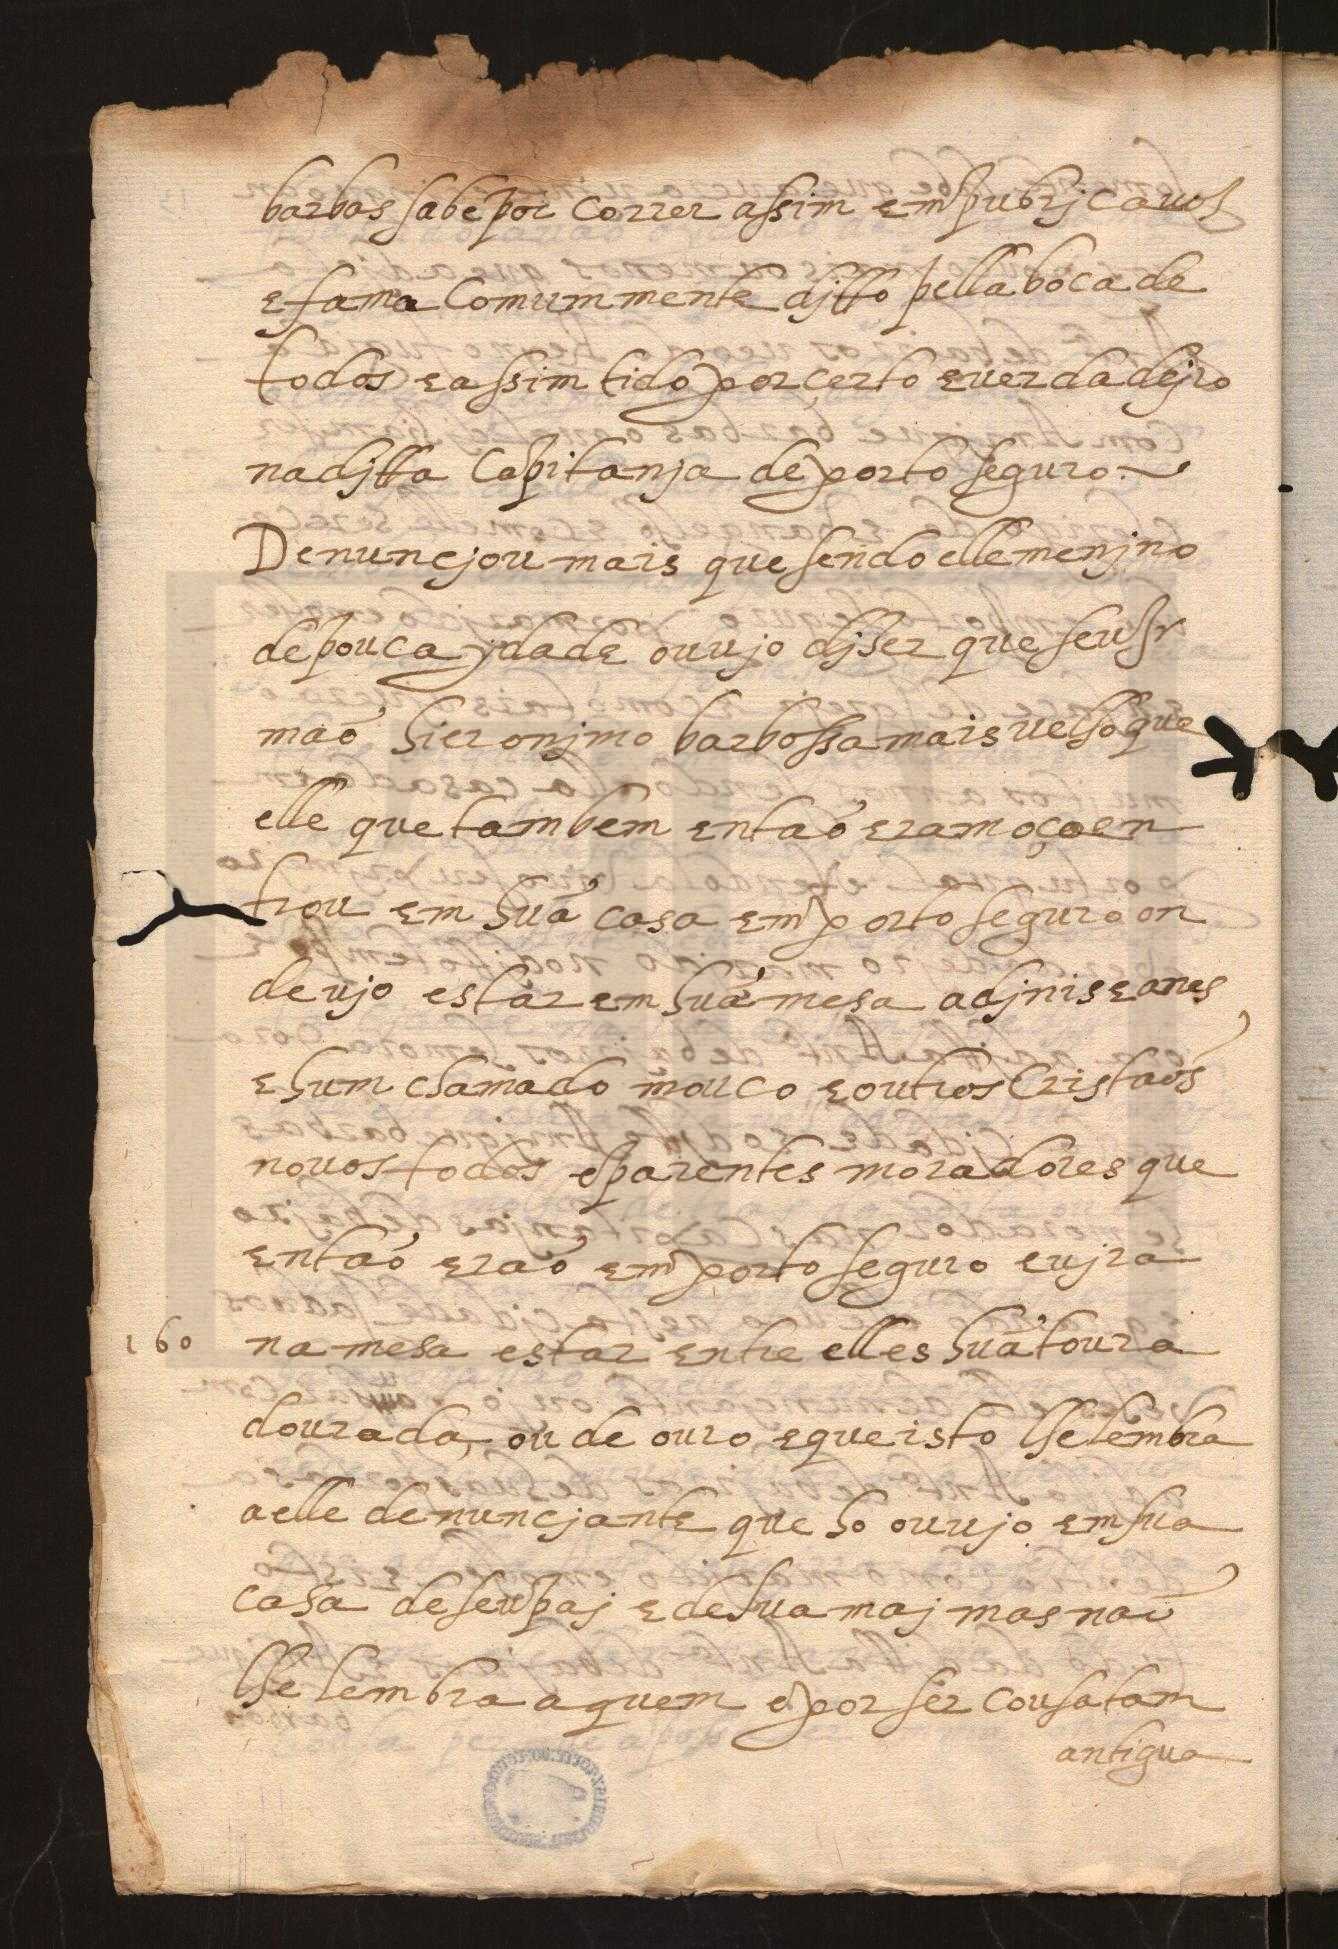 barbas sabe por correr assim em publjca vos
e fama Comummente djtto pella boca de
todos e assim tido por çerto e verdadejro
na djtta Capitanja de porto seguro.
Denuncjou mais que sendo elle menjno
de pouca ydade ouujo djser que seu Jr
maõ hieronjmo barbossa mais uelho que
elle que tambem entaõ era moço en
trou em hua casa em porto seguro on
de ujo estar em hua mesa a djnis eanes
e hum chamado mouco e outros Cristaõs
nouos todos e parentes moradores que
entaõ eraõ em porto seguro e ujra
160 na mesa estar entre elles hua toura
dourada, ou de ouro e que isto lhe lembra
a elle denuncjante que ho ouujo em sua
casa de seu paj e de sua maj mas naõ
lhe lembra a quem e por ser cousa tam
antigua